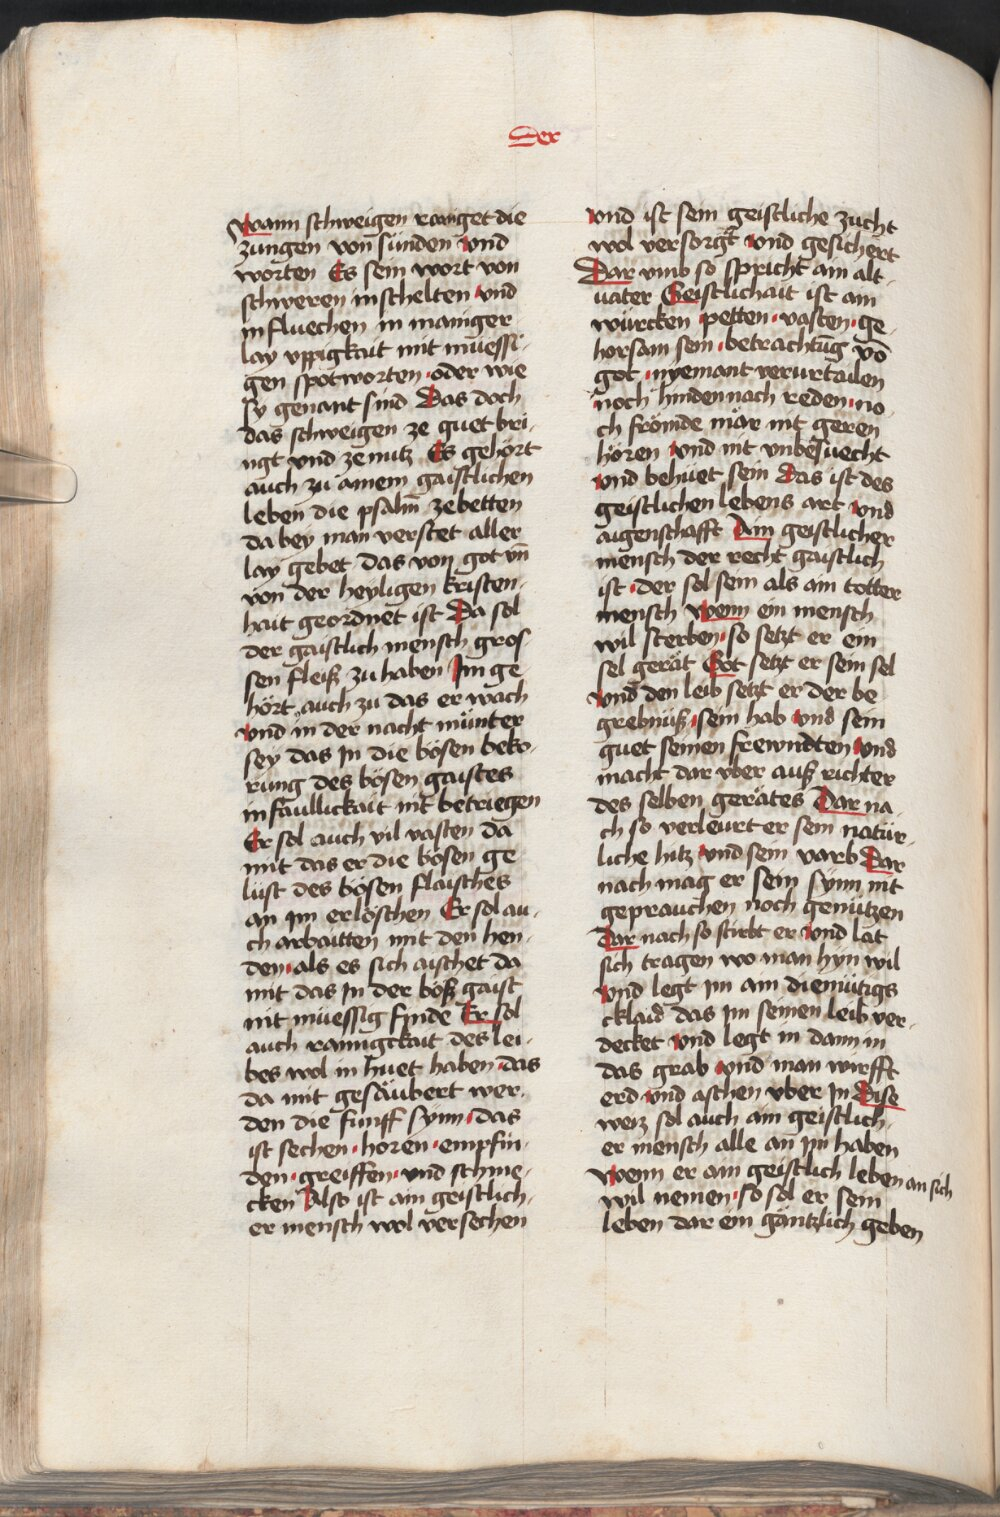 Der
Wann schweigen rainiget die
zungen von sünden Vnd
worten Es sein wort von
schweren in schelten vnd
in fluechen in maniger
lay vppigkait mit müessi-
gen spotworten oder wie
sy genant sind Das doch
das schweigen ze guet bri-
ngt vnd ze nutz Es gehört
auch zu ainem gaistlichen
leben die psalm̄ ze betten
da bey man verstet aller
lay gebet das von got vn̄
von der heyligen kristen-
hait geordnet ist Da sol
der gaistlich mensch gros
sen fleisz zu haben Im ge
hört auch zu das er wach
vnd in der nacht münter
sey das In die bösen beko-
rung des bösen gaistes
in faullickait nit betriegen
Er sol auch vil vasten da
mit das er die bösen ge
lüst des bösen flaisches
an im erlöschen Er sol au-
ch arbaitten mit den hen-
den als es sich aischet da
mit das In der bösz gaist
nit müessig finde Er sol
auch rainigckait des lei-
bes wol in huet haben das
da mit gesäubert wer-
den die funff synn das
ist sechen horen empfin-
den greiffen vnd schme-
cken Also ist ain geistlich-
er mensch wol versechen
vnd ist sein geistliche zucht
wol versorgt vnd gesichert
Dar vmb so spricht ain alt
uater Geistlichait ist ain
würcken petten vasten ge-
horsam sein betrachtūg vō
got nyemant verurtailen
noch hinden nach reden no-
ch frömde mär nit geren
hören vnd nit vnbesuecht
vnd behüet sein Das ist des
geistlichen lebens art vnd
aigenschafft Ain geistlicher
mensch der recht gaistlich
ist der sol sein als ain totter
mensch Wenn ein mensch
wil sterben so setzt er ein
sel gerät Got setzt er sein sel
vnd den leib setzt er der be
grebnüsz sein hab vnd sein
guet seinen frewndten vnd
macht dar vber ausz richter
des selben gerätes Dar na
ch so verleurt er sein natür-
liche hitz vnd sein varb Dar
nach mag er sein synn nit
geprauchen noch genützen
Dar nach so stirbt er vnd lät
sich tragen wo man hyn wil
Vnd legt im ain diemütigs
cklaid das im seinen leib ver-
decket vnd legt in dann in
das grab vnd man wirfft
erd vnd aschen vber In Dise
weiz sol auch ain geistlich-
er mensch alle an im haben
Wenn er ain geistlich leben an sich
wil nemen so sol er sein
leben dar ein gäntzlich geben